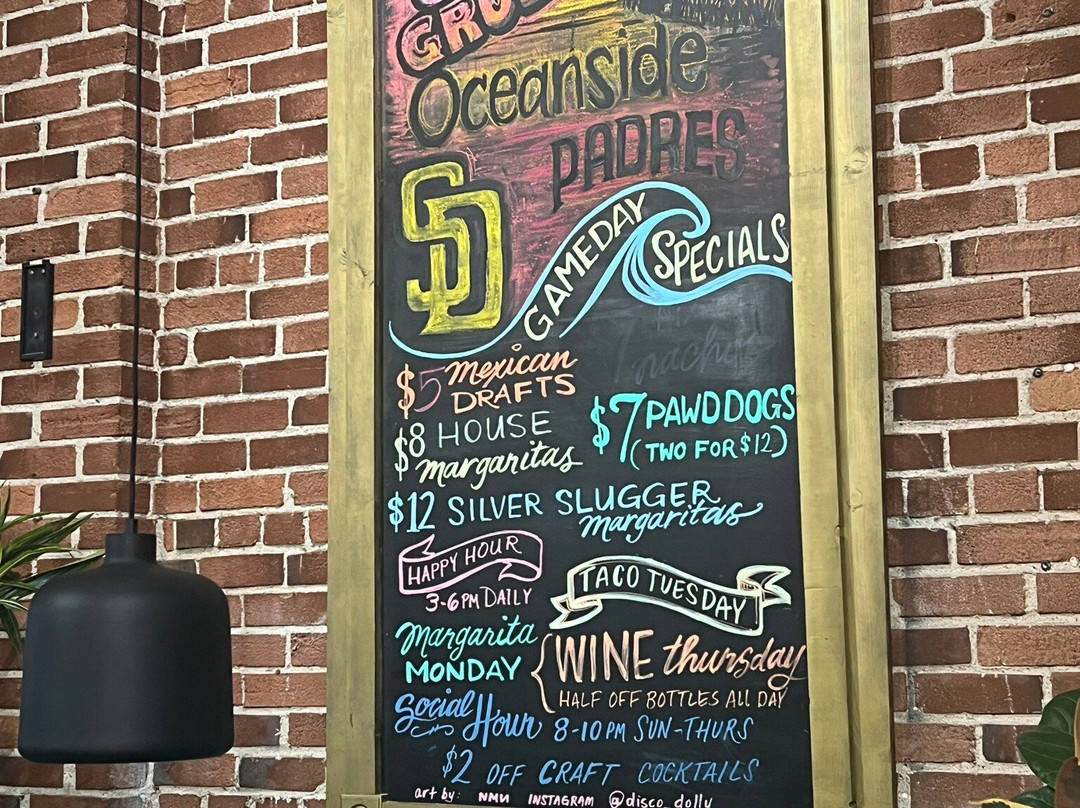 Oceanside
PADRES
SD
GAMEDAY
SPECIALS
$5 mexican
DRAFTS
$8 HOUSE
margaritas
$7 PAWDDOGS
(TWO FOR $12)
$12 SILVER SLUGGER
margaritas
HAPPY HOUR
3-6PM DAILY
TACO TUESDAY
Margarita
MONDAY
WINE thursday
HALF OFF BOTTLES ALL DAY
Social Hour 8-10PM SUN-THURS
$2 OFF CRAFT COCKTAILS
art by: NMN INSTAGRAM @disco_dolly